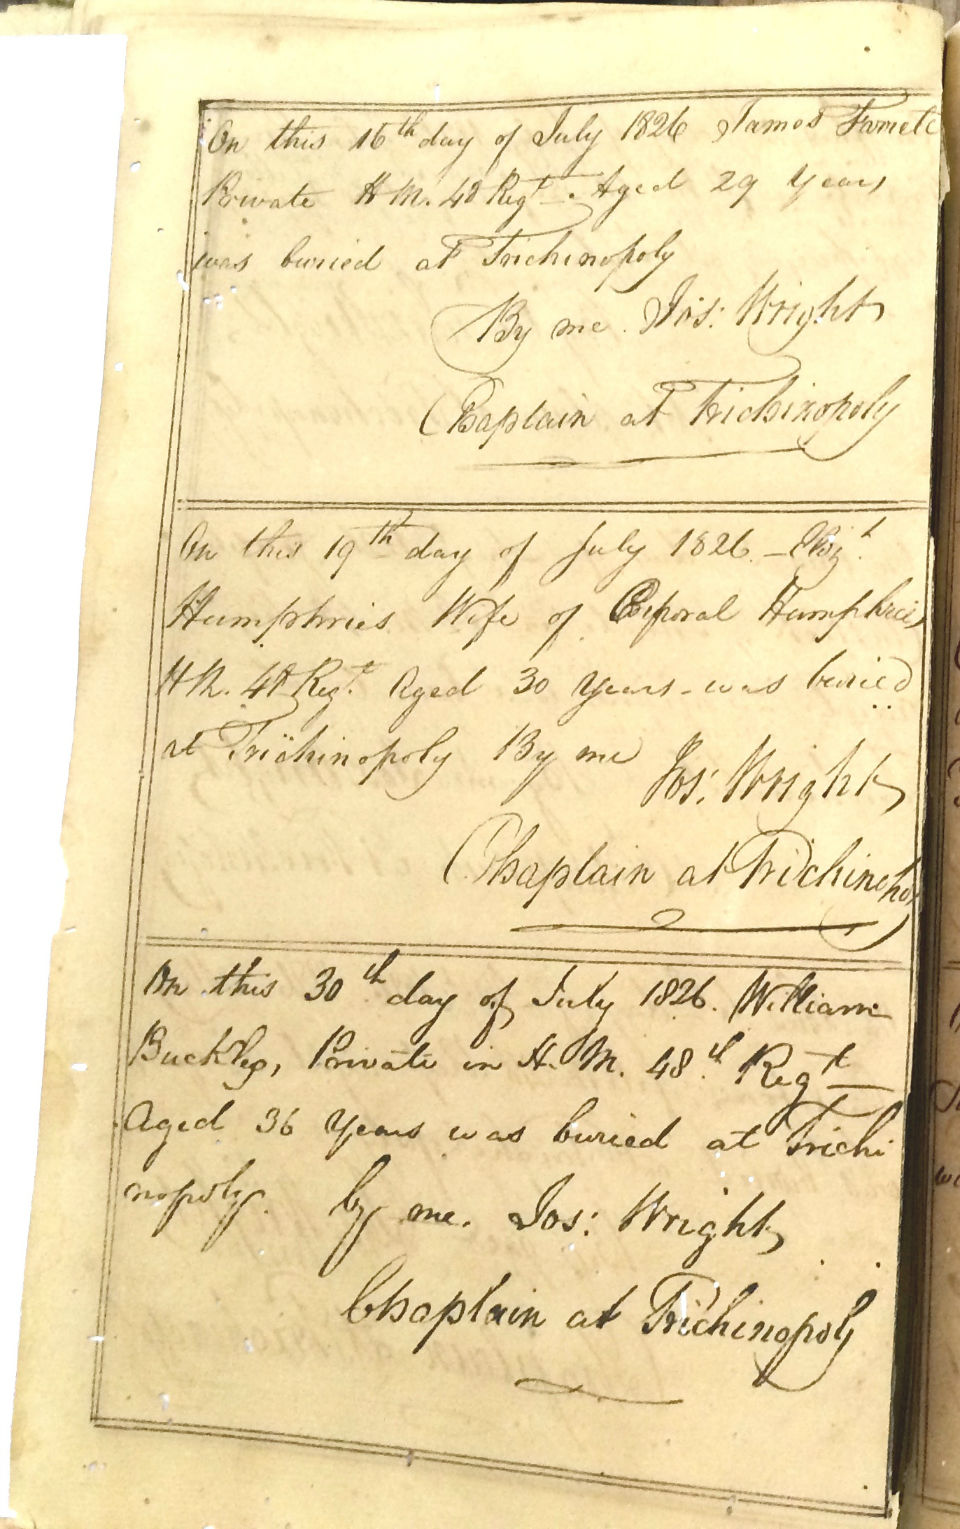 On this 16th day of July 1826 James
Private H M. 48 Regt. Aged 29 Years
was buried at Trichinopoly
By me Jos: Wright
Chaplain at Trichinopoly
On this 19th day of July 1826 - Eliz.t
Humphries Wife of Corporal Humphries
H M. 48 Regt. Aged 30 Years - was buried
at Trichinopoly By me Jos: Wright
Chaplain at Trichinopoly
On this 30th day of July 1826. William
Buckley, Private in H. M. 48th Regt
Aged 36 Years was buried at Trichi
nopoly. by me. Jos: Wright
Chaplain at Trichinopoly